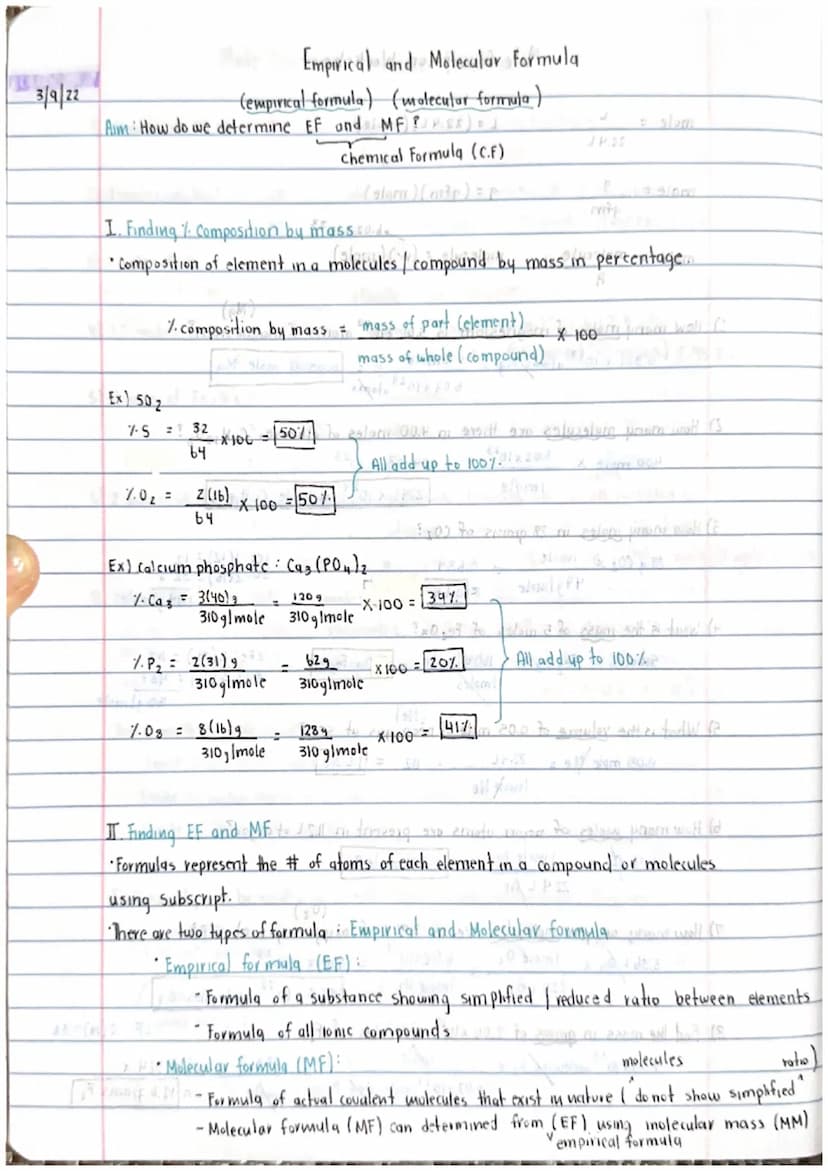 Empirical and Molecular Formula
3/9/22
(empirical formula) (molecular formula)
Aim: How do we determine EF and MF?
Chemical Formula (C.F)
I. Finding % Composition by mass
• Composition of element in a molecules / compound by mass in percentage.
% composition by mass = mass of part (element) X 100
mass of whole (compound)
Ex) SO2
% S = 32 X 100 = 50%
64
All add up to 100%.
% O2 = 2(16) X 100 = 50%
64
Ex) Calcium phosphate : Ca3(PO4)2
% Ca3 = 3(40)g = 120g X 100 = 39%
310g/mole 310g/mole
% P2 = 2(31)g = 62g X 100 = 20% All add up to 100%
310g/mole 310g/mole
% O8 = 8(16)g = 128g X 100 = 41%
310g/mole 310g/mole
II. Finding EF and MF
• Formulas represent the # of atoms of each element in a compound or molecules
using subscript.
• There are two types of formula : Empirical and Molecular formula
• Empirical formula (EF) :
- Formula of a substance showing simplified / reduced ratio between elements
- Formula of all ionic compounds
• Molecular formula (MF) :
molecules ratio)
- Formula of actual covalent molecules that exist in nature ( do not show simplified ^
- Molecular formula (MF) can determined from (EF) using molecular mass (MM)
empirical formula